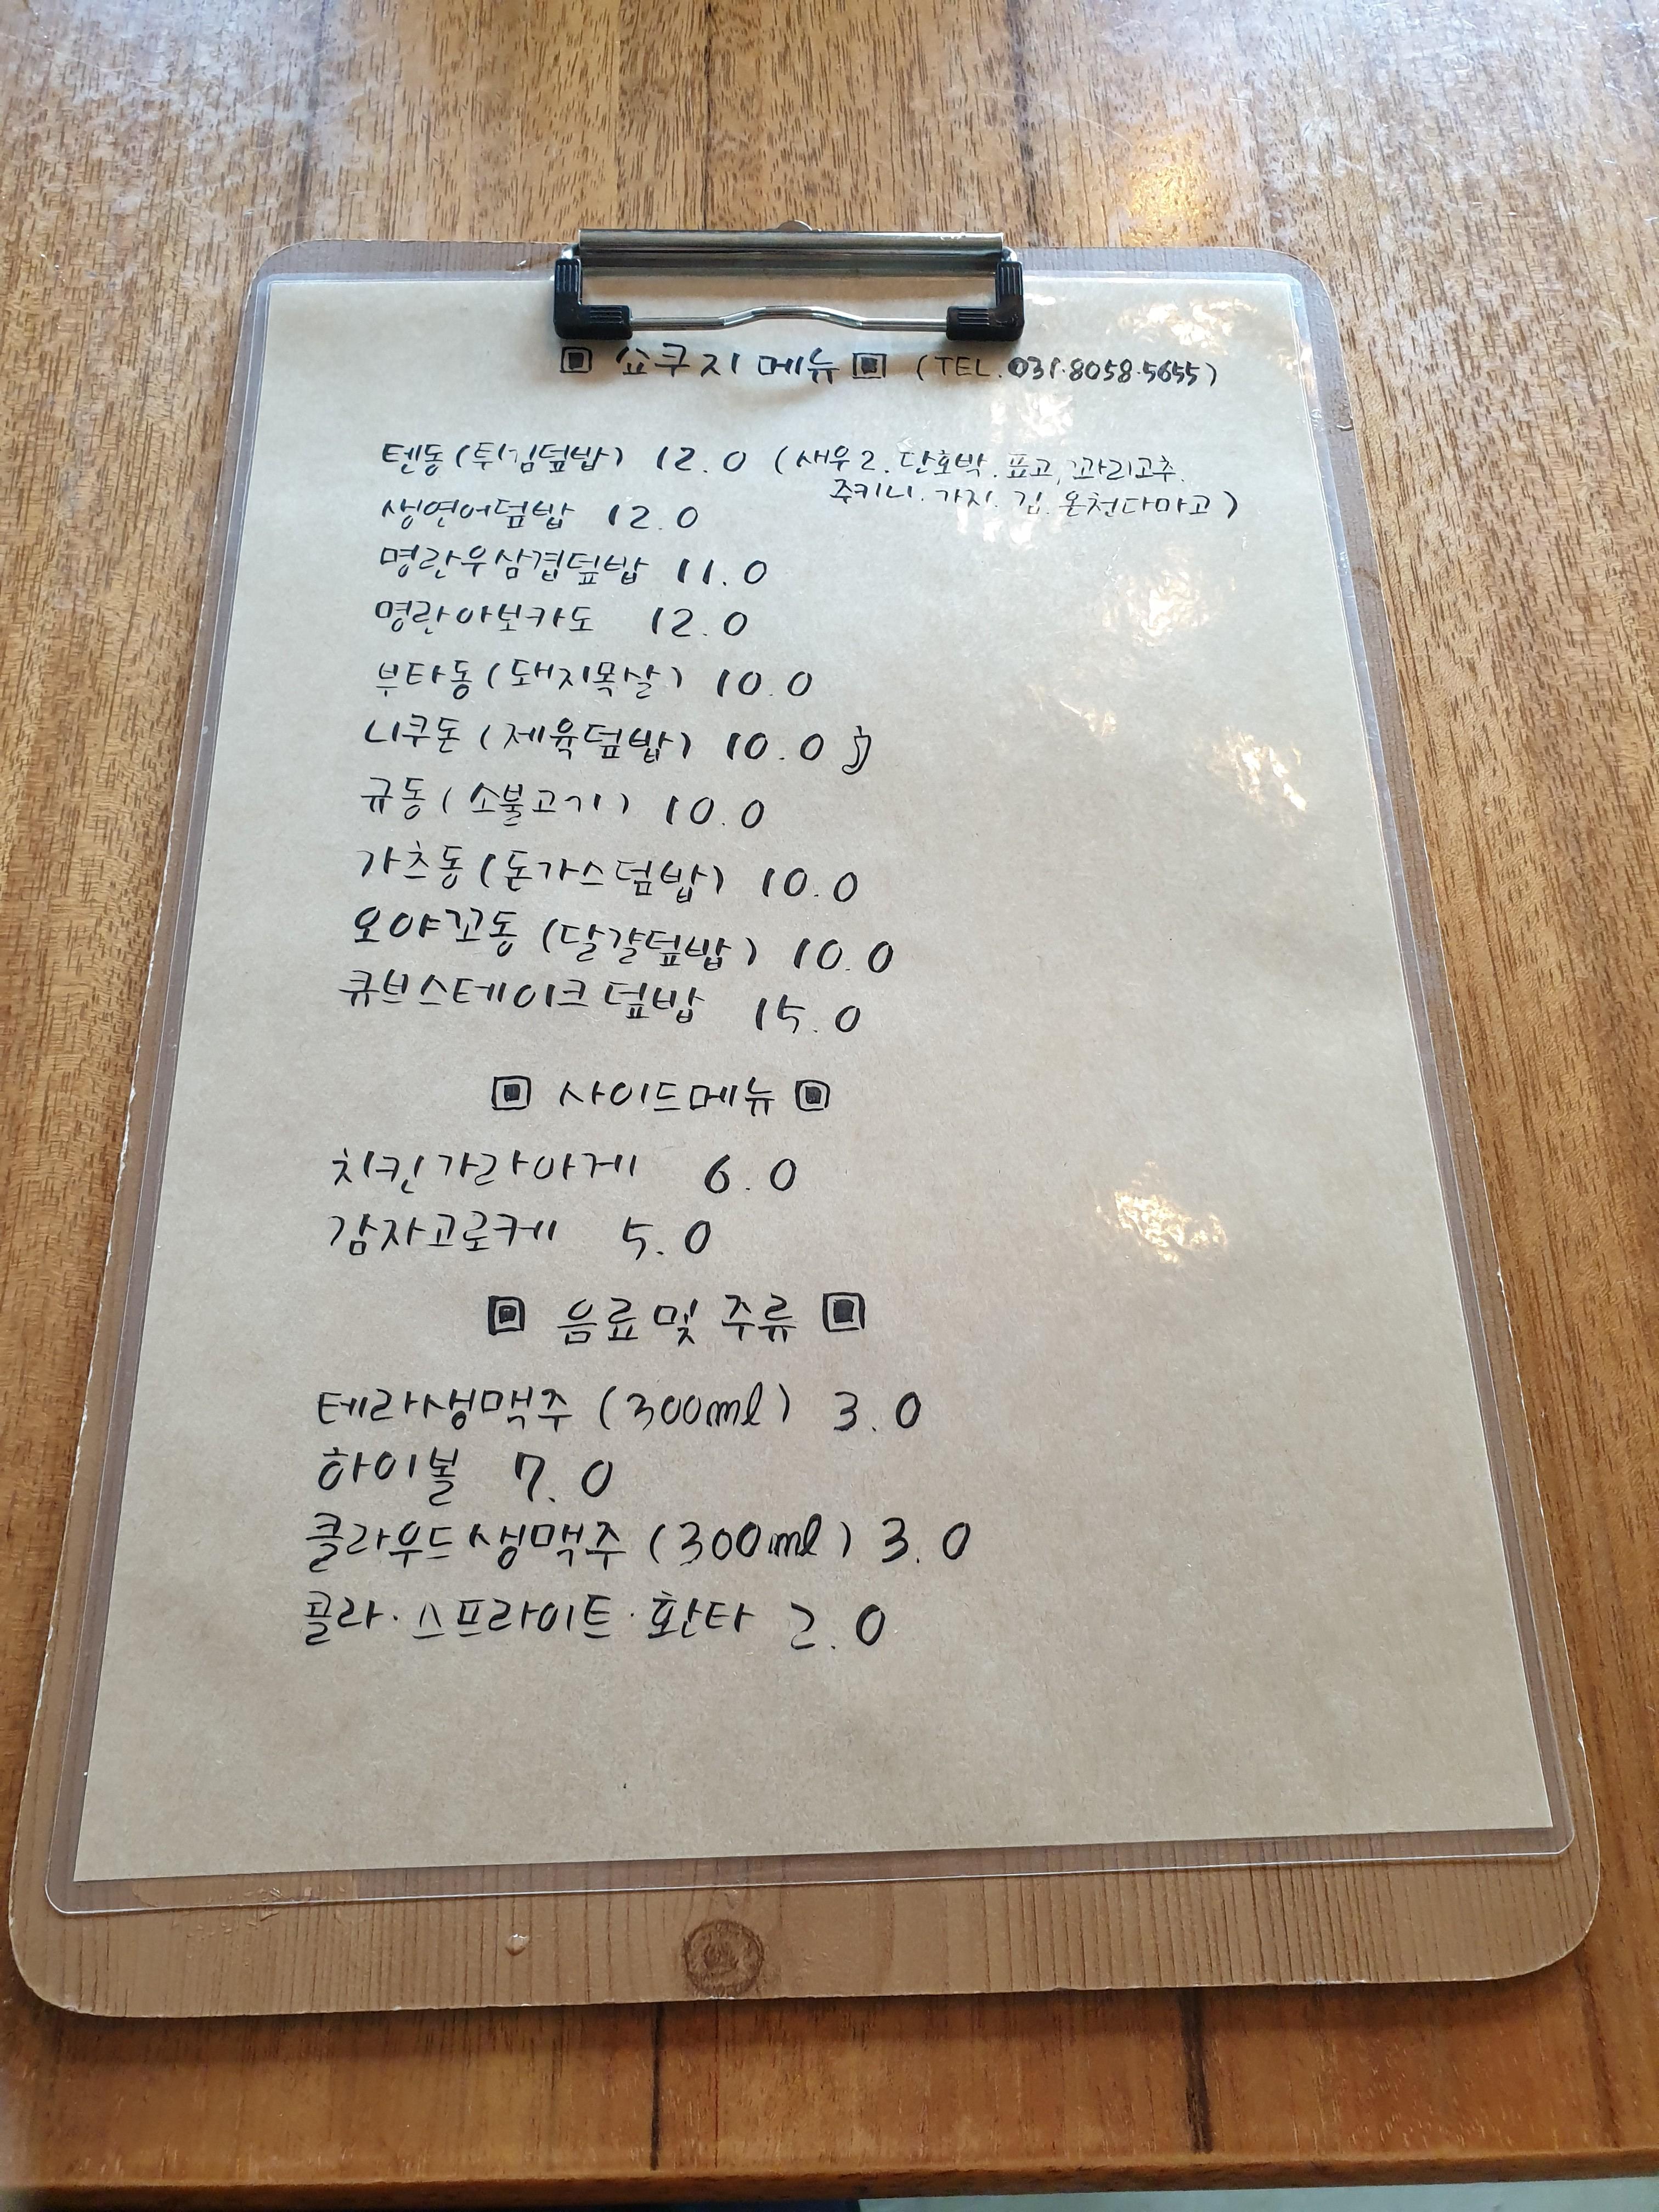 ▣ 쇼쿠지 메뉴 ▣ (TEL. 031·8058·5655)
텐동(튀김덮밥) 12.0 (새우2. 단호박. 표고, 꽈리고추.
주키니. 가지. 김. 온천다마고)
생연어덮밥 12.0
명란우삼겹덮밥 11.0
명란아보카도 12.0
부타동(돼지목살) 10.0
니쿠돈(제육덮밥) 10.0
규동(소불고기) 10.0
가츠동(돈가스덮밥) 10.0
오야꼬동(달걀덮밥) 10.0
큐브스테이크덮밥 15.0
▣ 사이드메뉴 ▣
치킨가라아게 6.0
감자고로케 5.0
▣ 음료및 주류 ▣
테라생맥주 (300ml) 3.0
하이볼 7.0
클라우드생맥주 (300ml) 3.0
콜라·스프라이트·환타 2.0